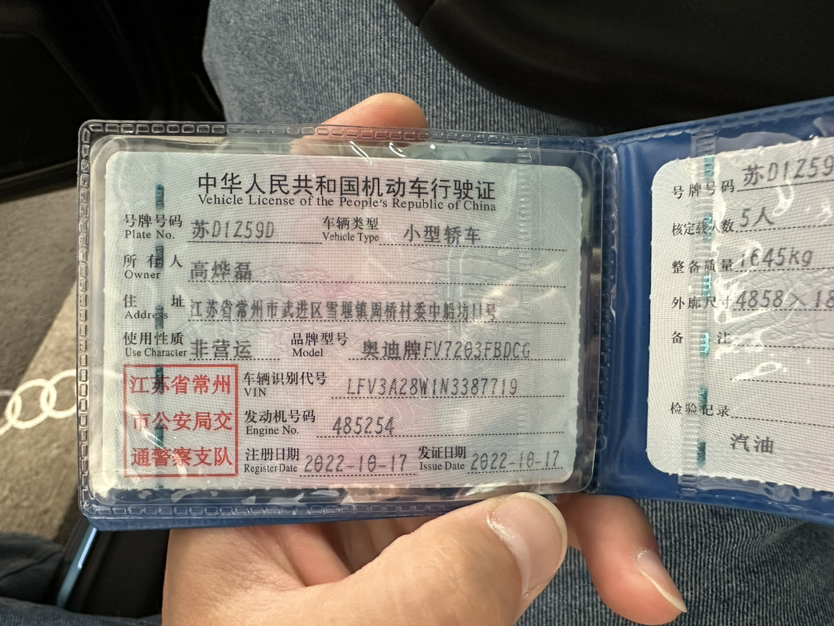 中华人民共和国机动车行驶证
Vehicle License of the People's Republic of China
号牌号码 苏D1Z59D 车辆类型 小型轿车
Plate No. Vehicle Type
所有人 高烨磊
Owner
住址 江苏省常州市武进区雪堰镇周桥村委中船坊11号
Address
使用性质 非营运 品牌型号 奥迪牌FV7203FBDCG
Use Character Model
江苏省常州
市公安局交
通警察支队
车辆识别代号 LFV3A28W1N3387719
VIN
发动机号码 485254
Engine No.
注册日期 2022-10-17 发证日期 2022-10-17
Register Date Issue Date
号牌号码 苏D1Z59
核定载人数 5人
整备质量 1645kg
外廓尺寸 4858×18
备注
检验记录
汽油